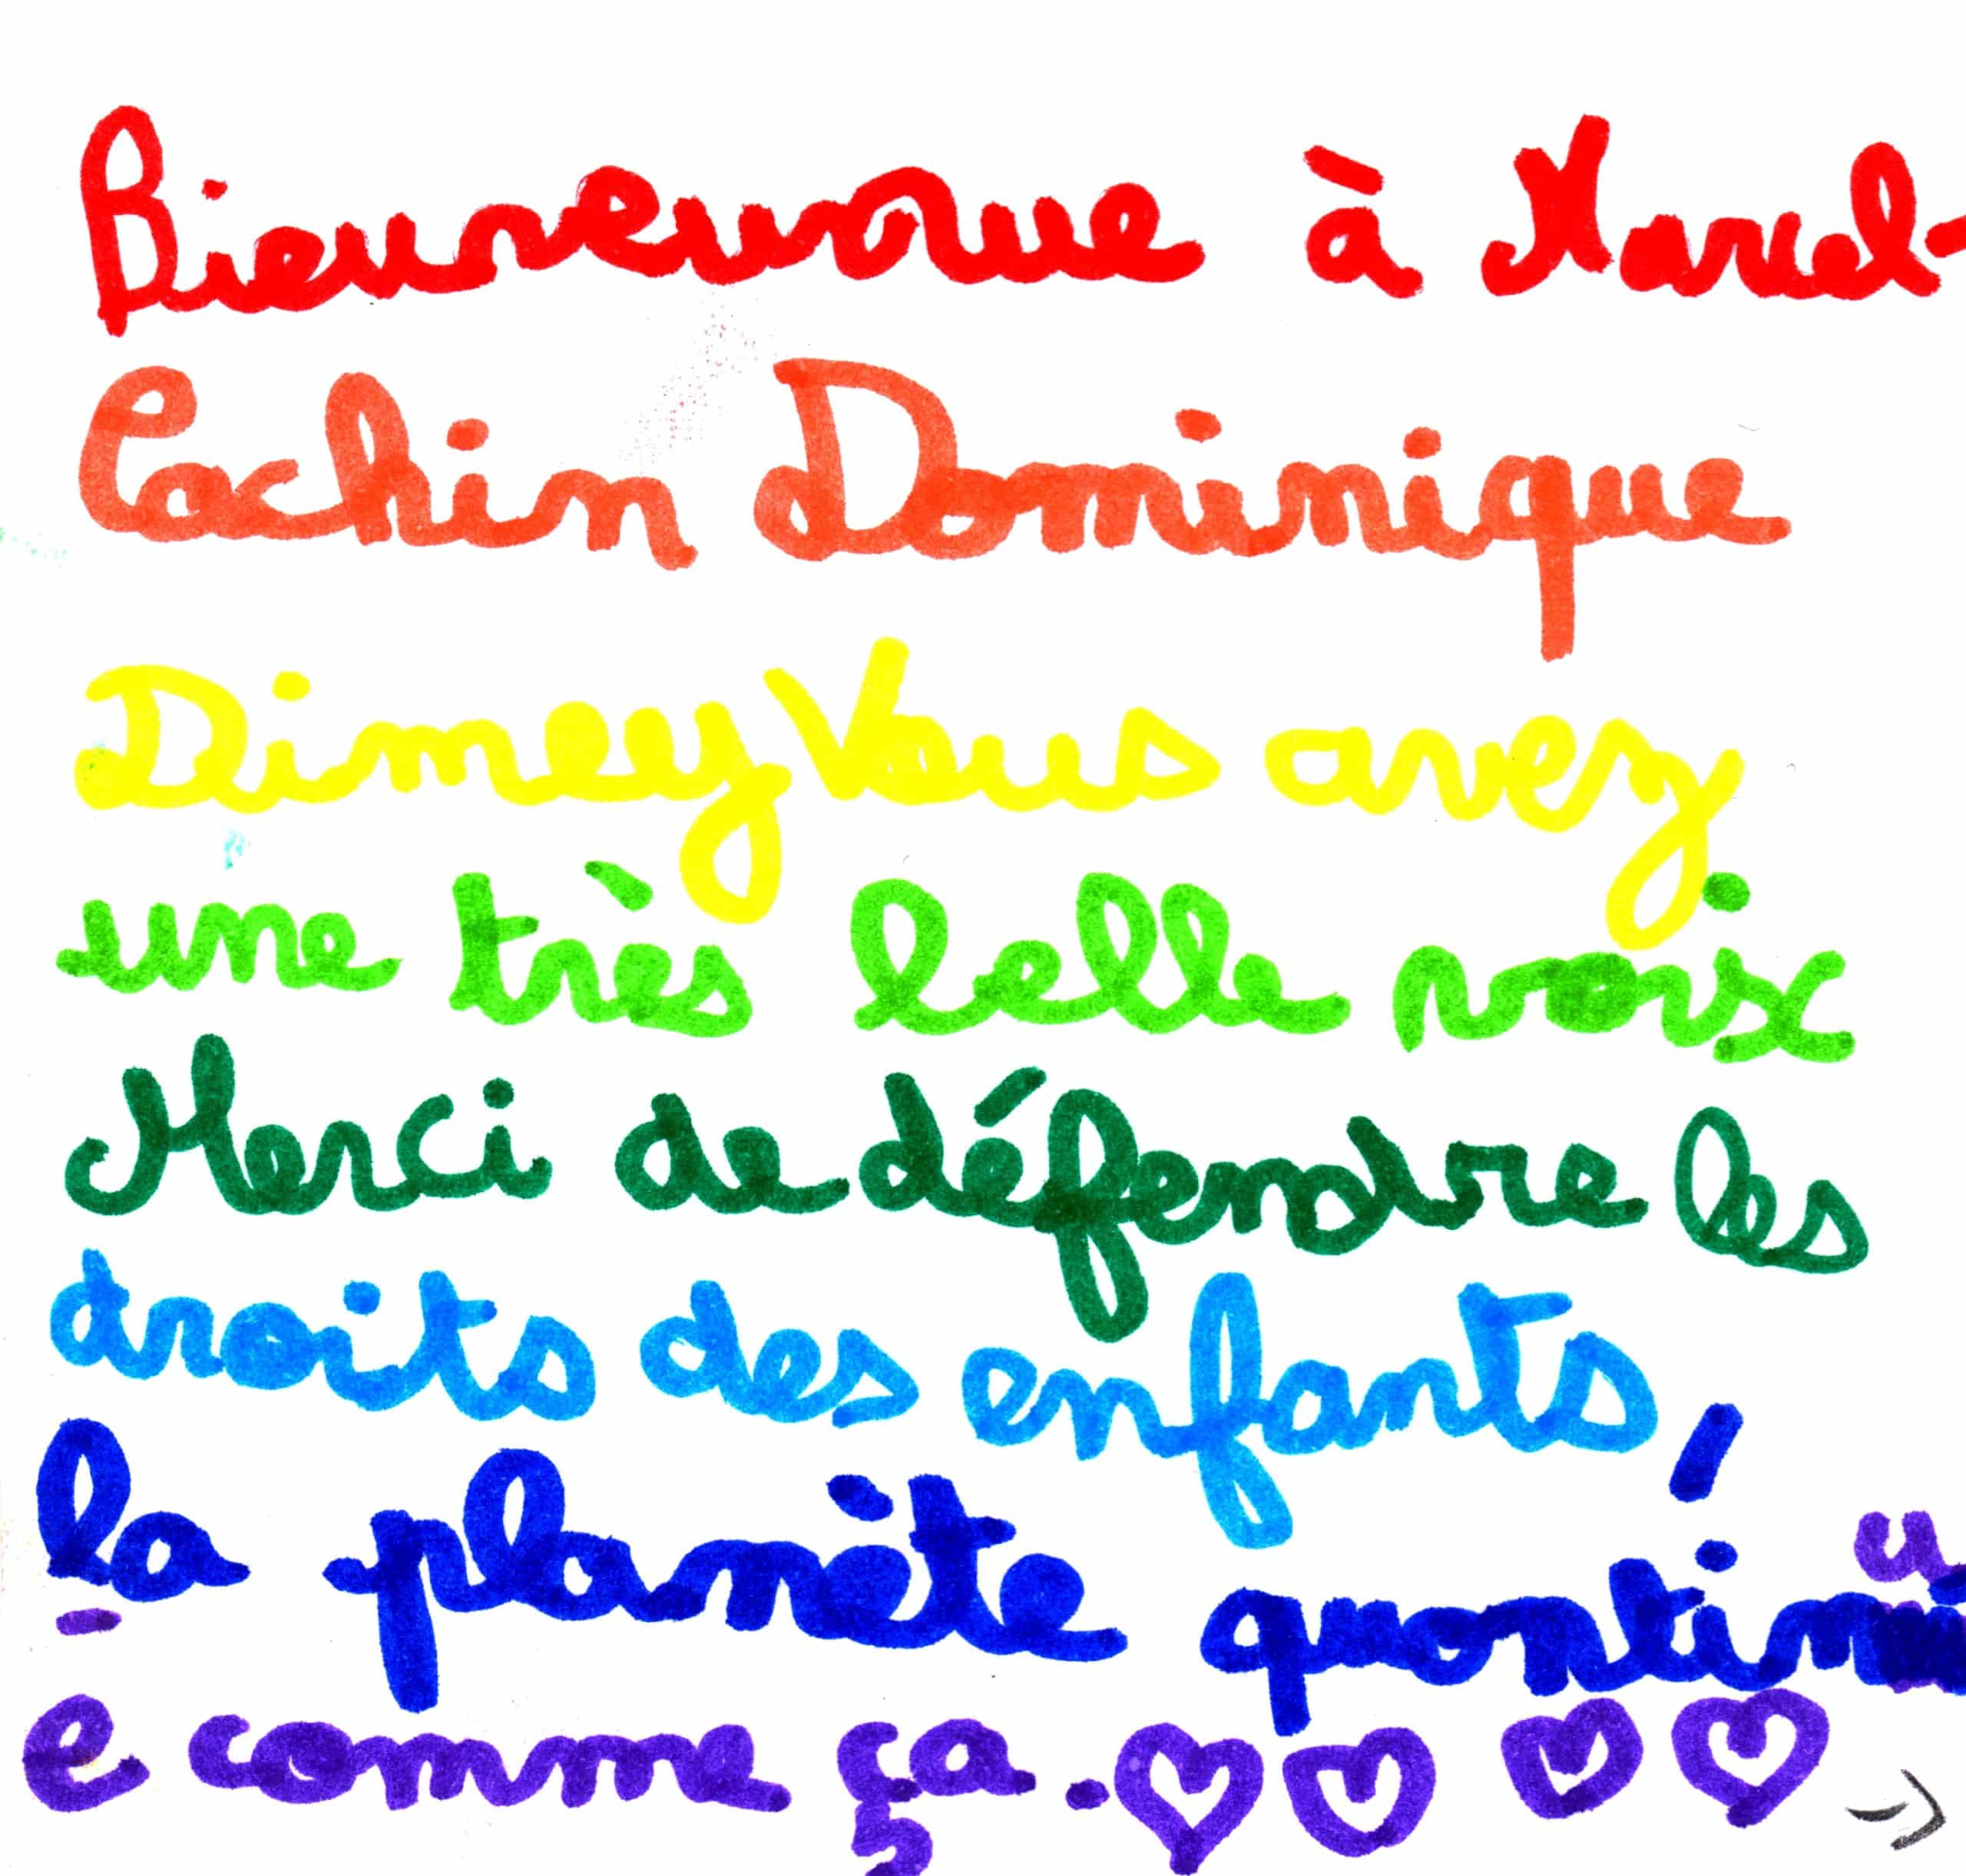 Bienvenue à Marcel-
Cachin Dominique
Dimey Vous avez
une très belle voix
Merci de défendre les
droits des enfants,
la planète quontinu
e comme ça.